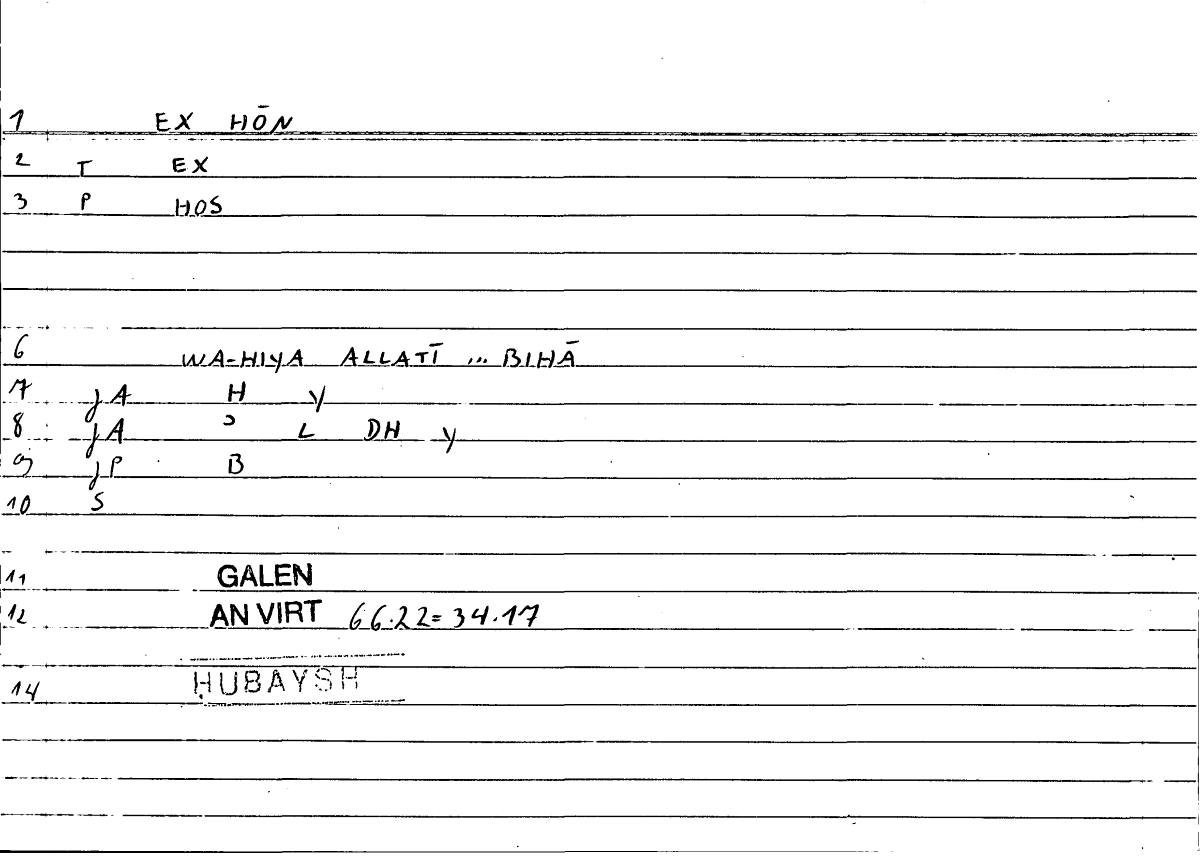 1 EX HŌN
2 T EX
3 P HOS
6 WA-HIYA ALLATĪ ... BIHĀ
7 jA H Y
8 jA ʾ L DH Y
9 jP B
10 S
11 GALEN
12 AN VIRT 66.22=34.17
14 ḤUBAYSH